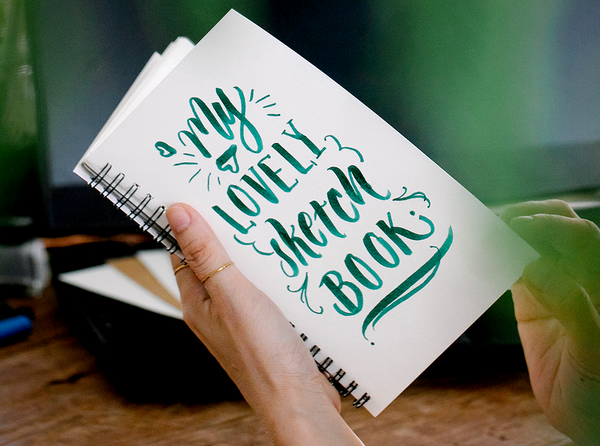 My
LOVELY
sketch
BOOK.